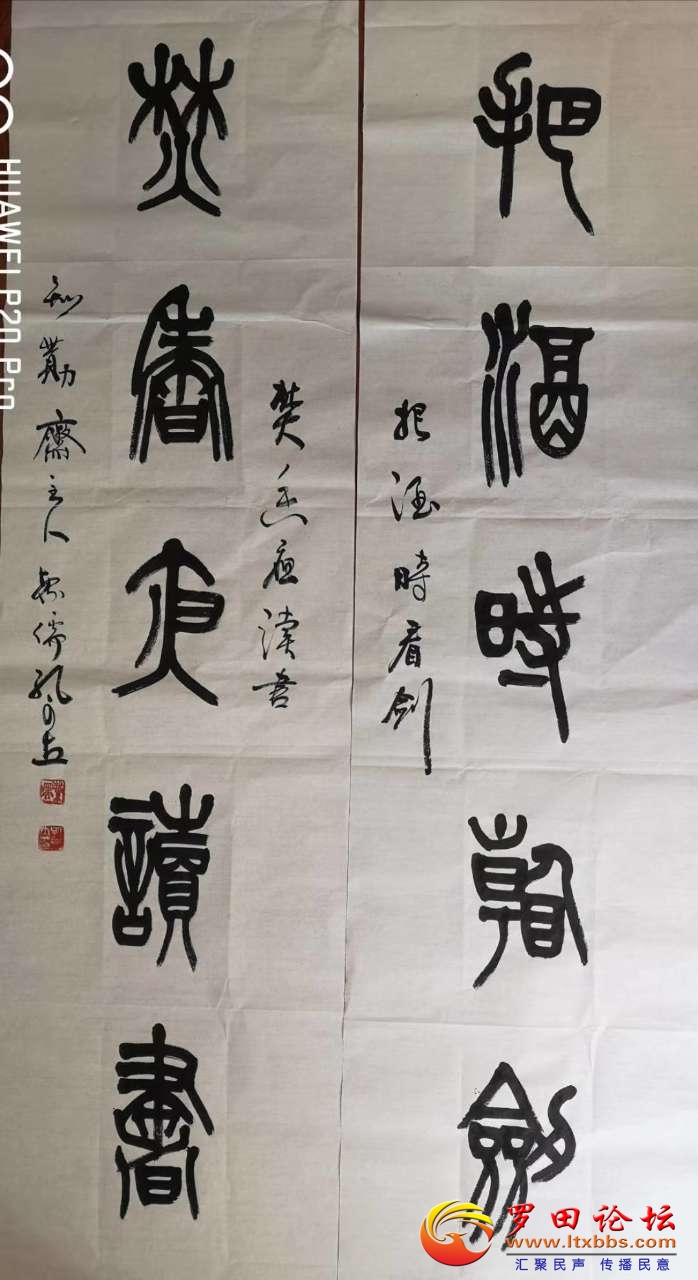 把酒時看劍
把酒時看劍
焚香夜讀書
焚香夜读書
知勤齋主人
HUAWEI P20 Pro
罗田论坛
www.ltxbbs.com
汇聚民声 传播民意